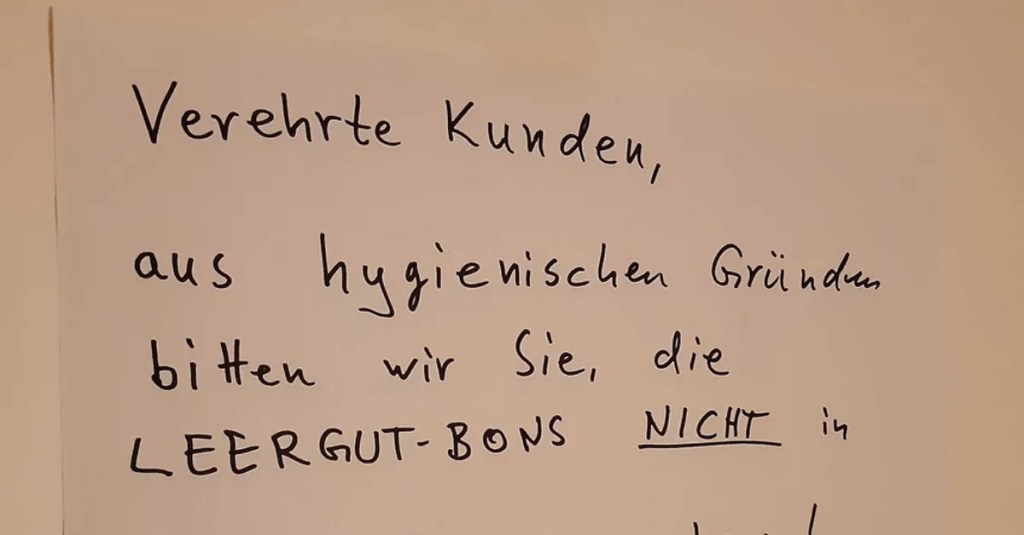 Verehrte Kunden,
aus hygienischen Gründen
bitten wir Sie, die
LEERGUT-BONS NICHT in